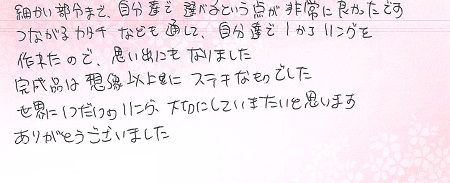 細かい部分まで、自分達で選べるという点が非常に良かったです
つながるカタチなども通して、自分達で1からリングを
作れたので、思い出にもなりました
完成品は想像以上にステキなものでした
世界に1つだけのリング、大切にしていきたいと思います
ありがとうございました